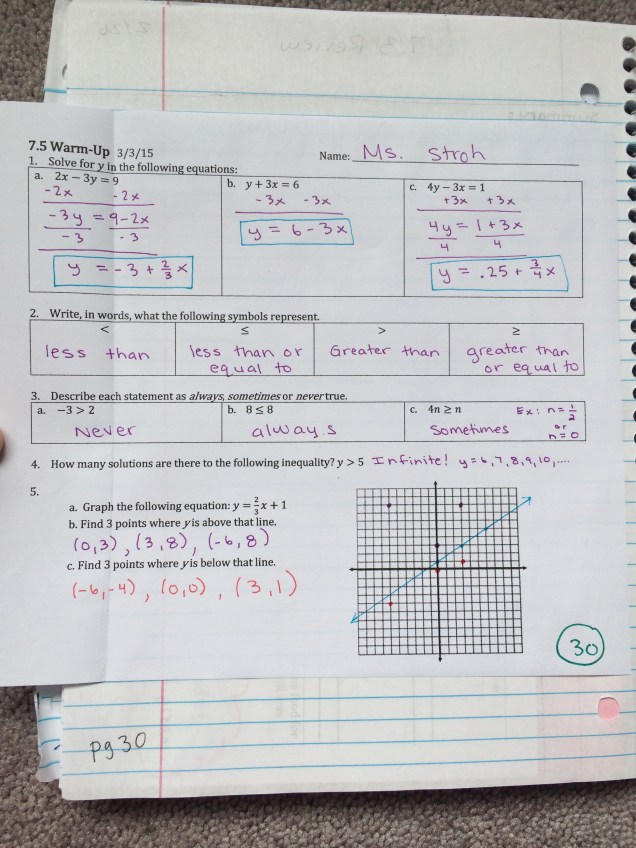 7.3 Review
2/24
Summary:
7.5 Warm-Up 3/3/15
Name: Ms. Stroh
1. Solve for y in the following equations:
a. 2x − 3y = 9
-2x -2x
-3y = 9-2x
-3 -3
y = -3 + 2/3 x
b. y + 3x = 6
-3x -3x
y = 6-3x
c. 4y − 3x = 1
+3x +3x
4y = 1+3x
4 4
y = .25 + 3/4 x
2. Write, in words, what the following symbols represent.
< ≤ > ≥
less than
less than or
equal to
Greater than
greater than
or equal to
3. Describe each statement as always, sometimes or never true.
a. −3 > 2
Never
b. 8 ≤ 8
always
c. 4n ≥ n
Sometimes
Ex: n = 1/2
or
n = 0
4. How many solutions are there to the following inequality? y > 5 Infinite! y=6,7,8,9,10,....
5.
a. Graph the following equation: y = 2/3 x + 1
b. Find 3 points where y is above that line.
(0,3), (3,8), (-6,8)
c. Find 3 points where y is below that line.
(-6,-4), (0,0), (3,1)
30
pg 30